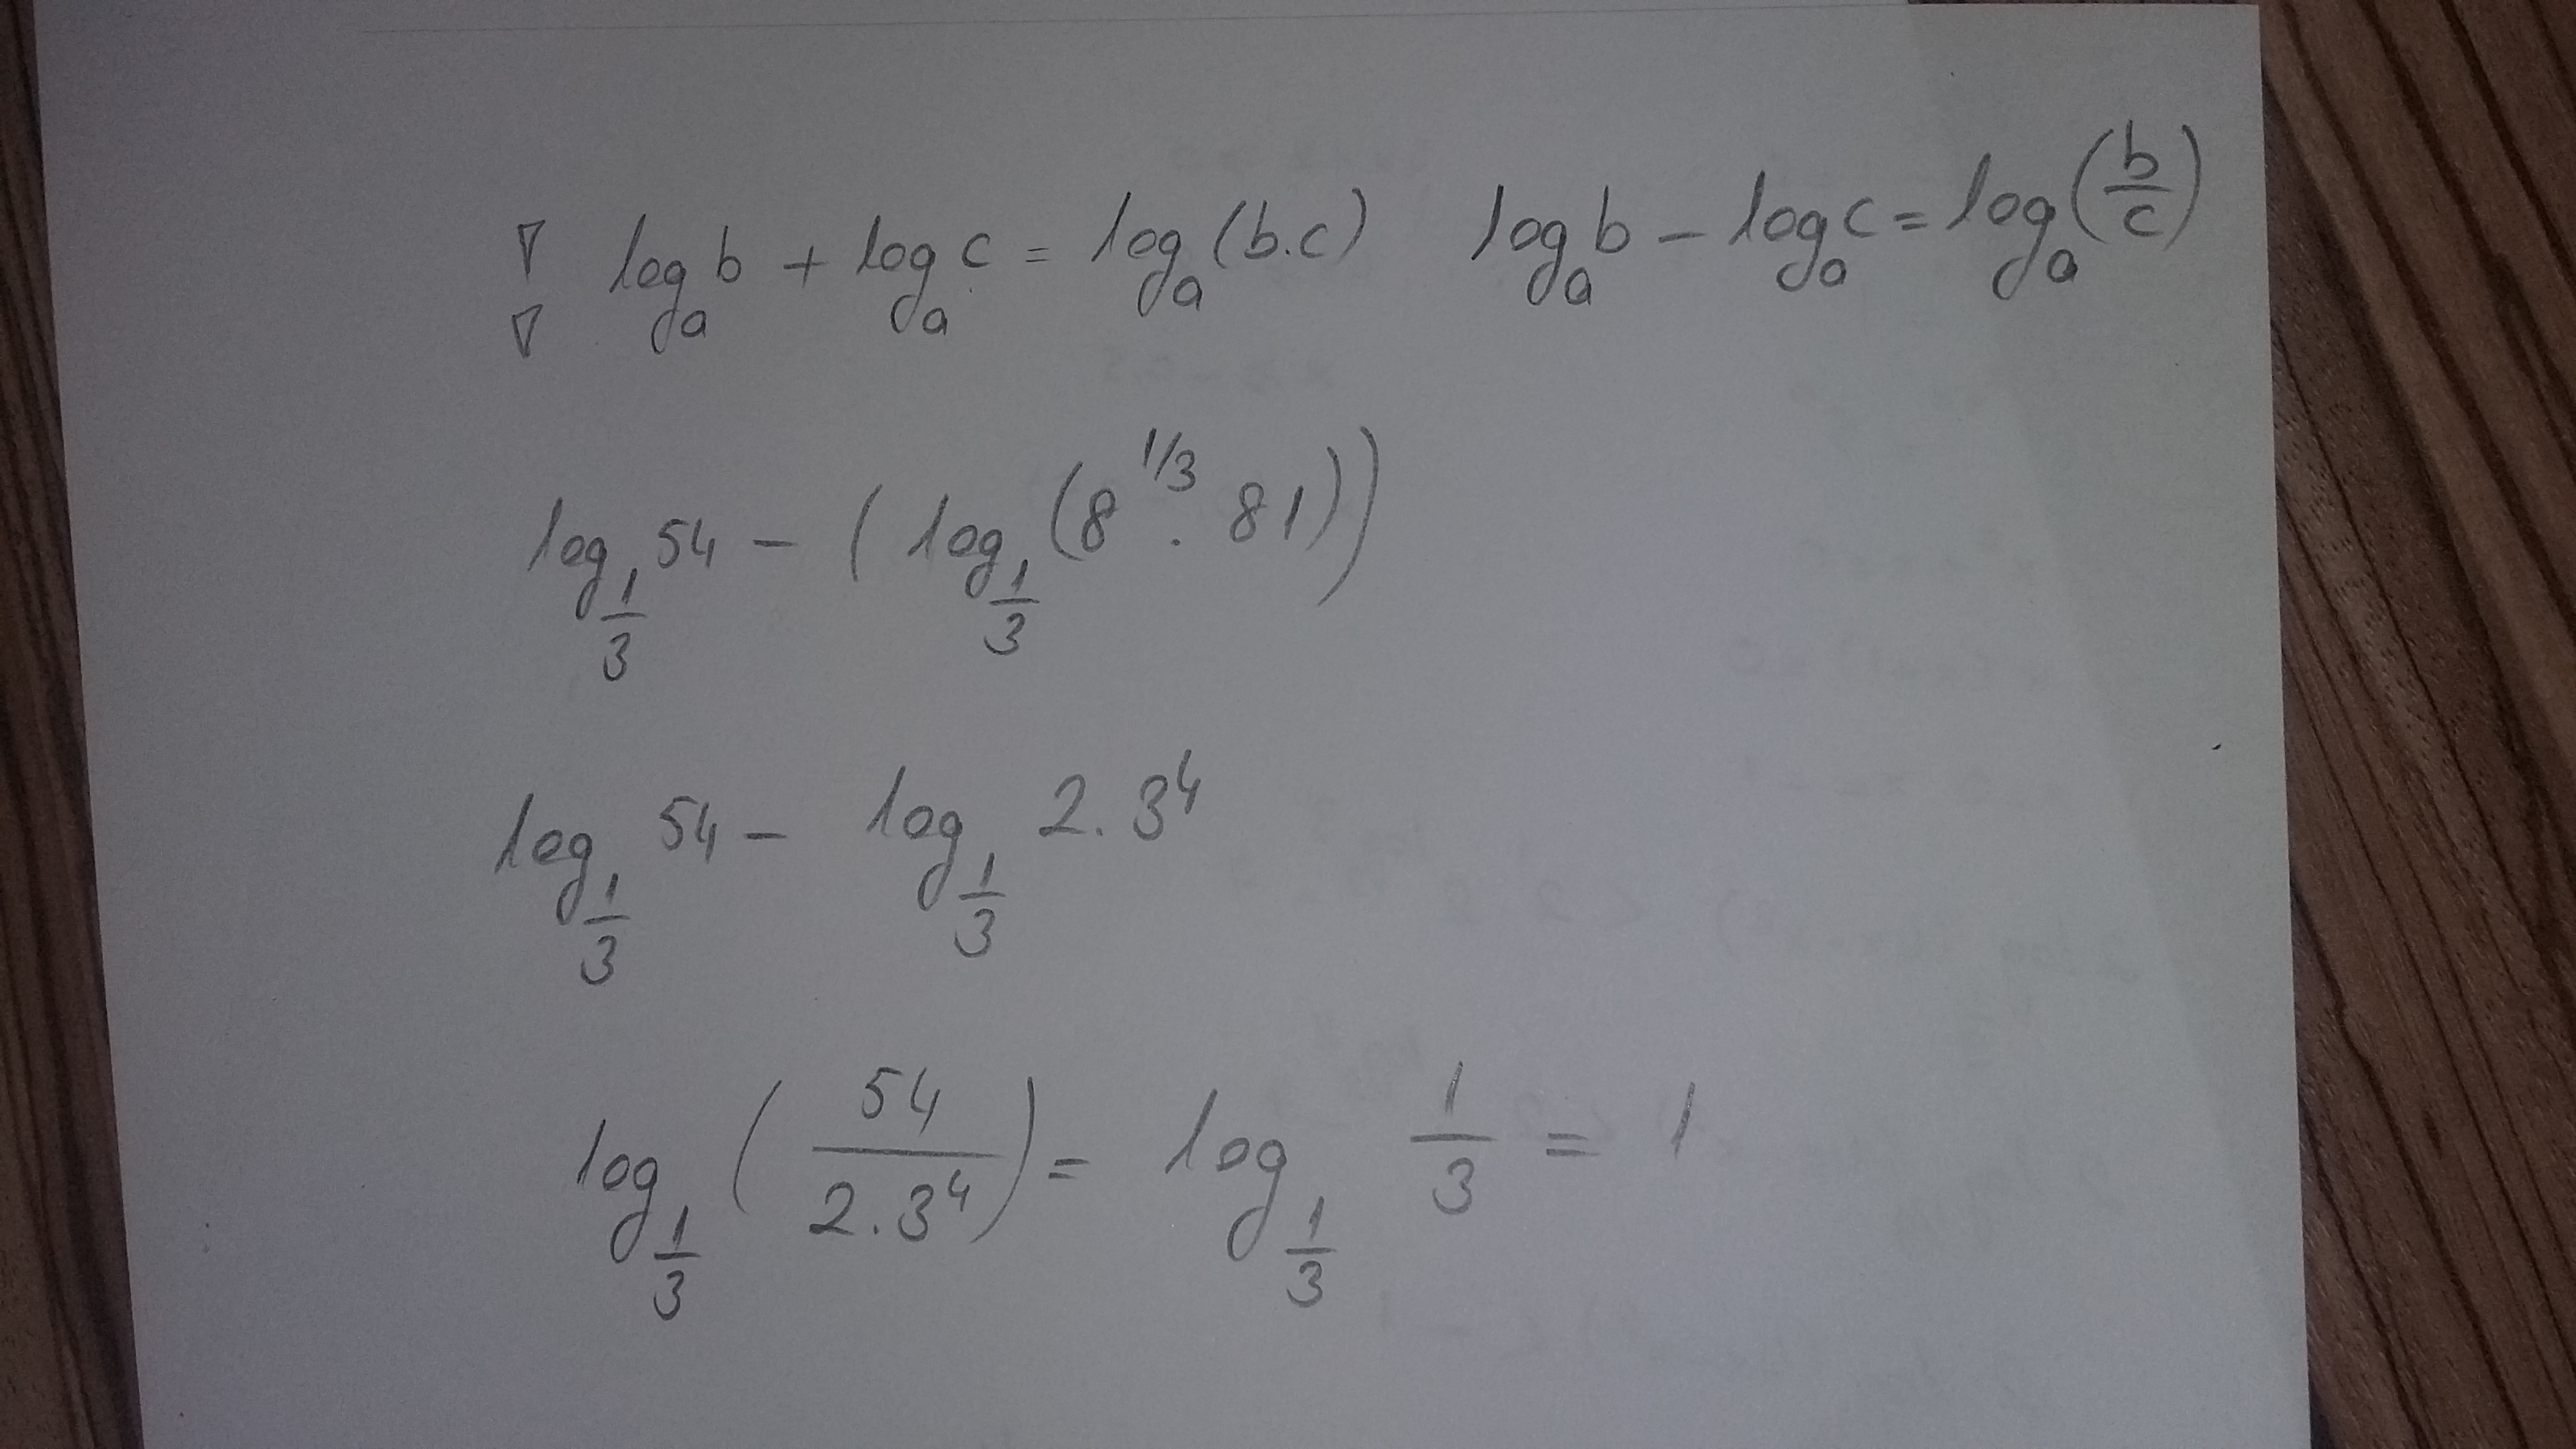 log_a b + log_a c = log_a (b.c) log_a b - log_a c = log_a (b/c)
log_{1/3} 54 - ( log_{1/3} (8^{1/3} . 81))
log_{1/3} 54 - log_{1/3} 2.3^4
log_{1/3} (54/2.3^4) = log_{1/3} 1/3 = 1